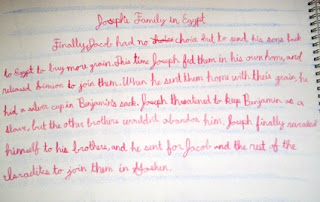 Joseph's Family in Egypt
Finally, Jacob had no choice but to send his sons back
to Egypt to buy more grain. This time Joseph fed them in his own home, and
released Simeon to join them. When he sent them home with their grain, he
hid a silver cup in Benjamin's sack. Joseph threatened to keep Benjamin as a
slave, but the other brothers wouldn't abandon him. Joseph finally revealed
himself to his brothers, and he sent for Jacob and the rest of the
Israelites to join them in Goshen.